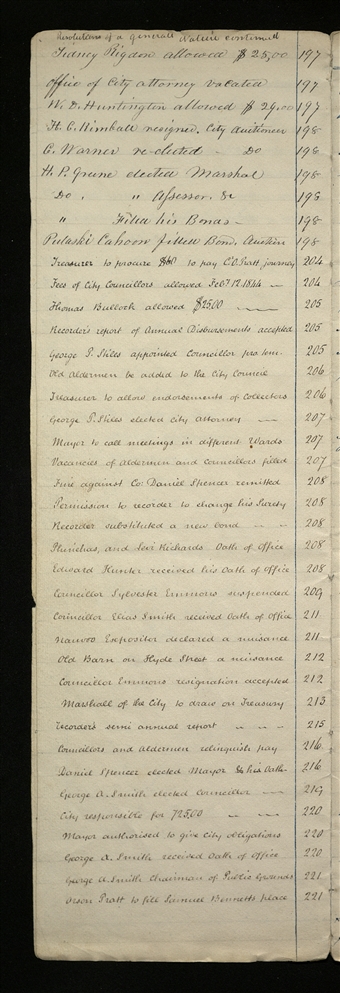 Resolutions of a general Nature continued
Sidney Rigdon allowed $25,00 197
Office of City attorney vacated 197
W. D. Huntington allowed $29.00 197
H. C. Kimball resigned. City Auctioneer 198
C. Warner re-elected - Do 198
H. P. Greene elected Marshal 198
Do. " Assessor. &c 198
" Filed his Bonds - 198
Pulaski Cahoon filled Bond, Auctin 198
Treasurer to procure $60 to pay C.O. Pratt, journey 204
Fees of City Councillors allowed Feb 7. 12. 1844 - 204
Thomas Bullock allowed $25.00 205
Recorder's report of Annual Disbursements accepted 205
George P. Stiles appointed Councillor pro tem. 205
Old Aldermen be added to the City Council 206
Treasurer to allow endorsements of Collectors 206
George P. Stiles elected city attorney - 207
Mayor to call meetings in different Wards 207
Vacancies of Aldermen and Councillors filled 207
Fine against Co Daniel Spencer remitted 208
Permission to recorder to change his Surety 208
Recorder substituted a new bond - - 208
Phinehas, and Levi Richards Oath of Office 208
Edward Hunter received his Oath of Office 208
Councillor Sylvester Emmons suspended 209
Councillor Elias Smith received Oath of Office 211
Nauvoo Expositor declared a nuisance 211
Old Barn on Hyde Street a nuisance 212
Councillor Emmons resignation accepted 212
Marshall of the City to draw on Treasury 213
Recorders semi annual report - - - 215
Councillors and Aldermen relinquish pay 216
Daniel Spencer elected Mayor & his Oath. 216
George A. Smith elected Councillor - 219
City responsible for 725.00 - - 220
Mayor authorised to give City obligations 220
George A. Smith received Oath of office 220
George A. Smith Chairman of Public Grounds 221
Orson Pratt to fill Samuel Bennetts place 221